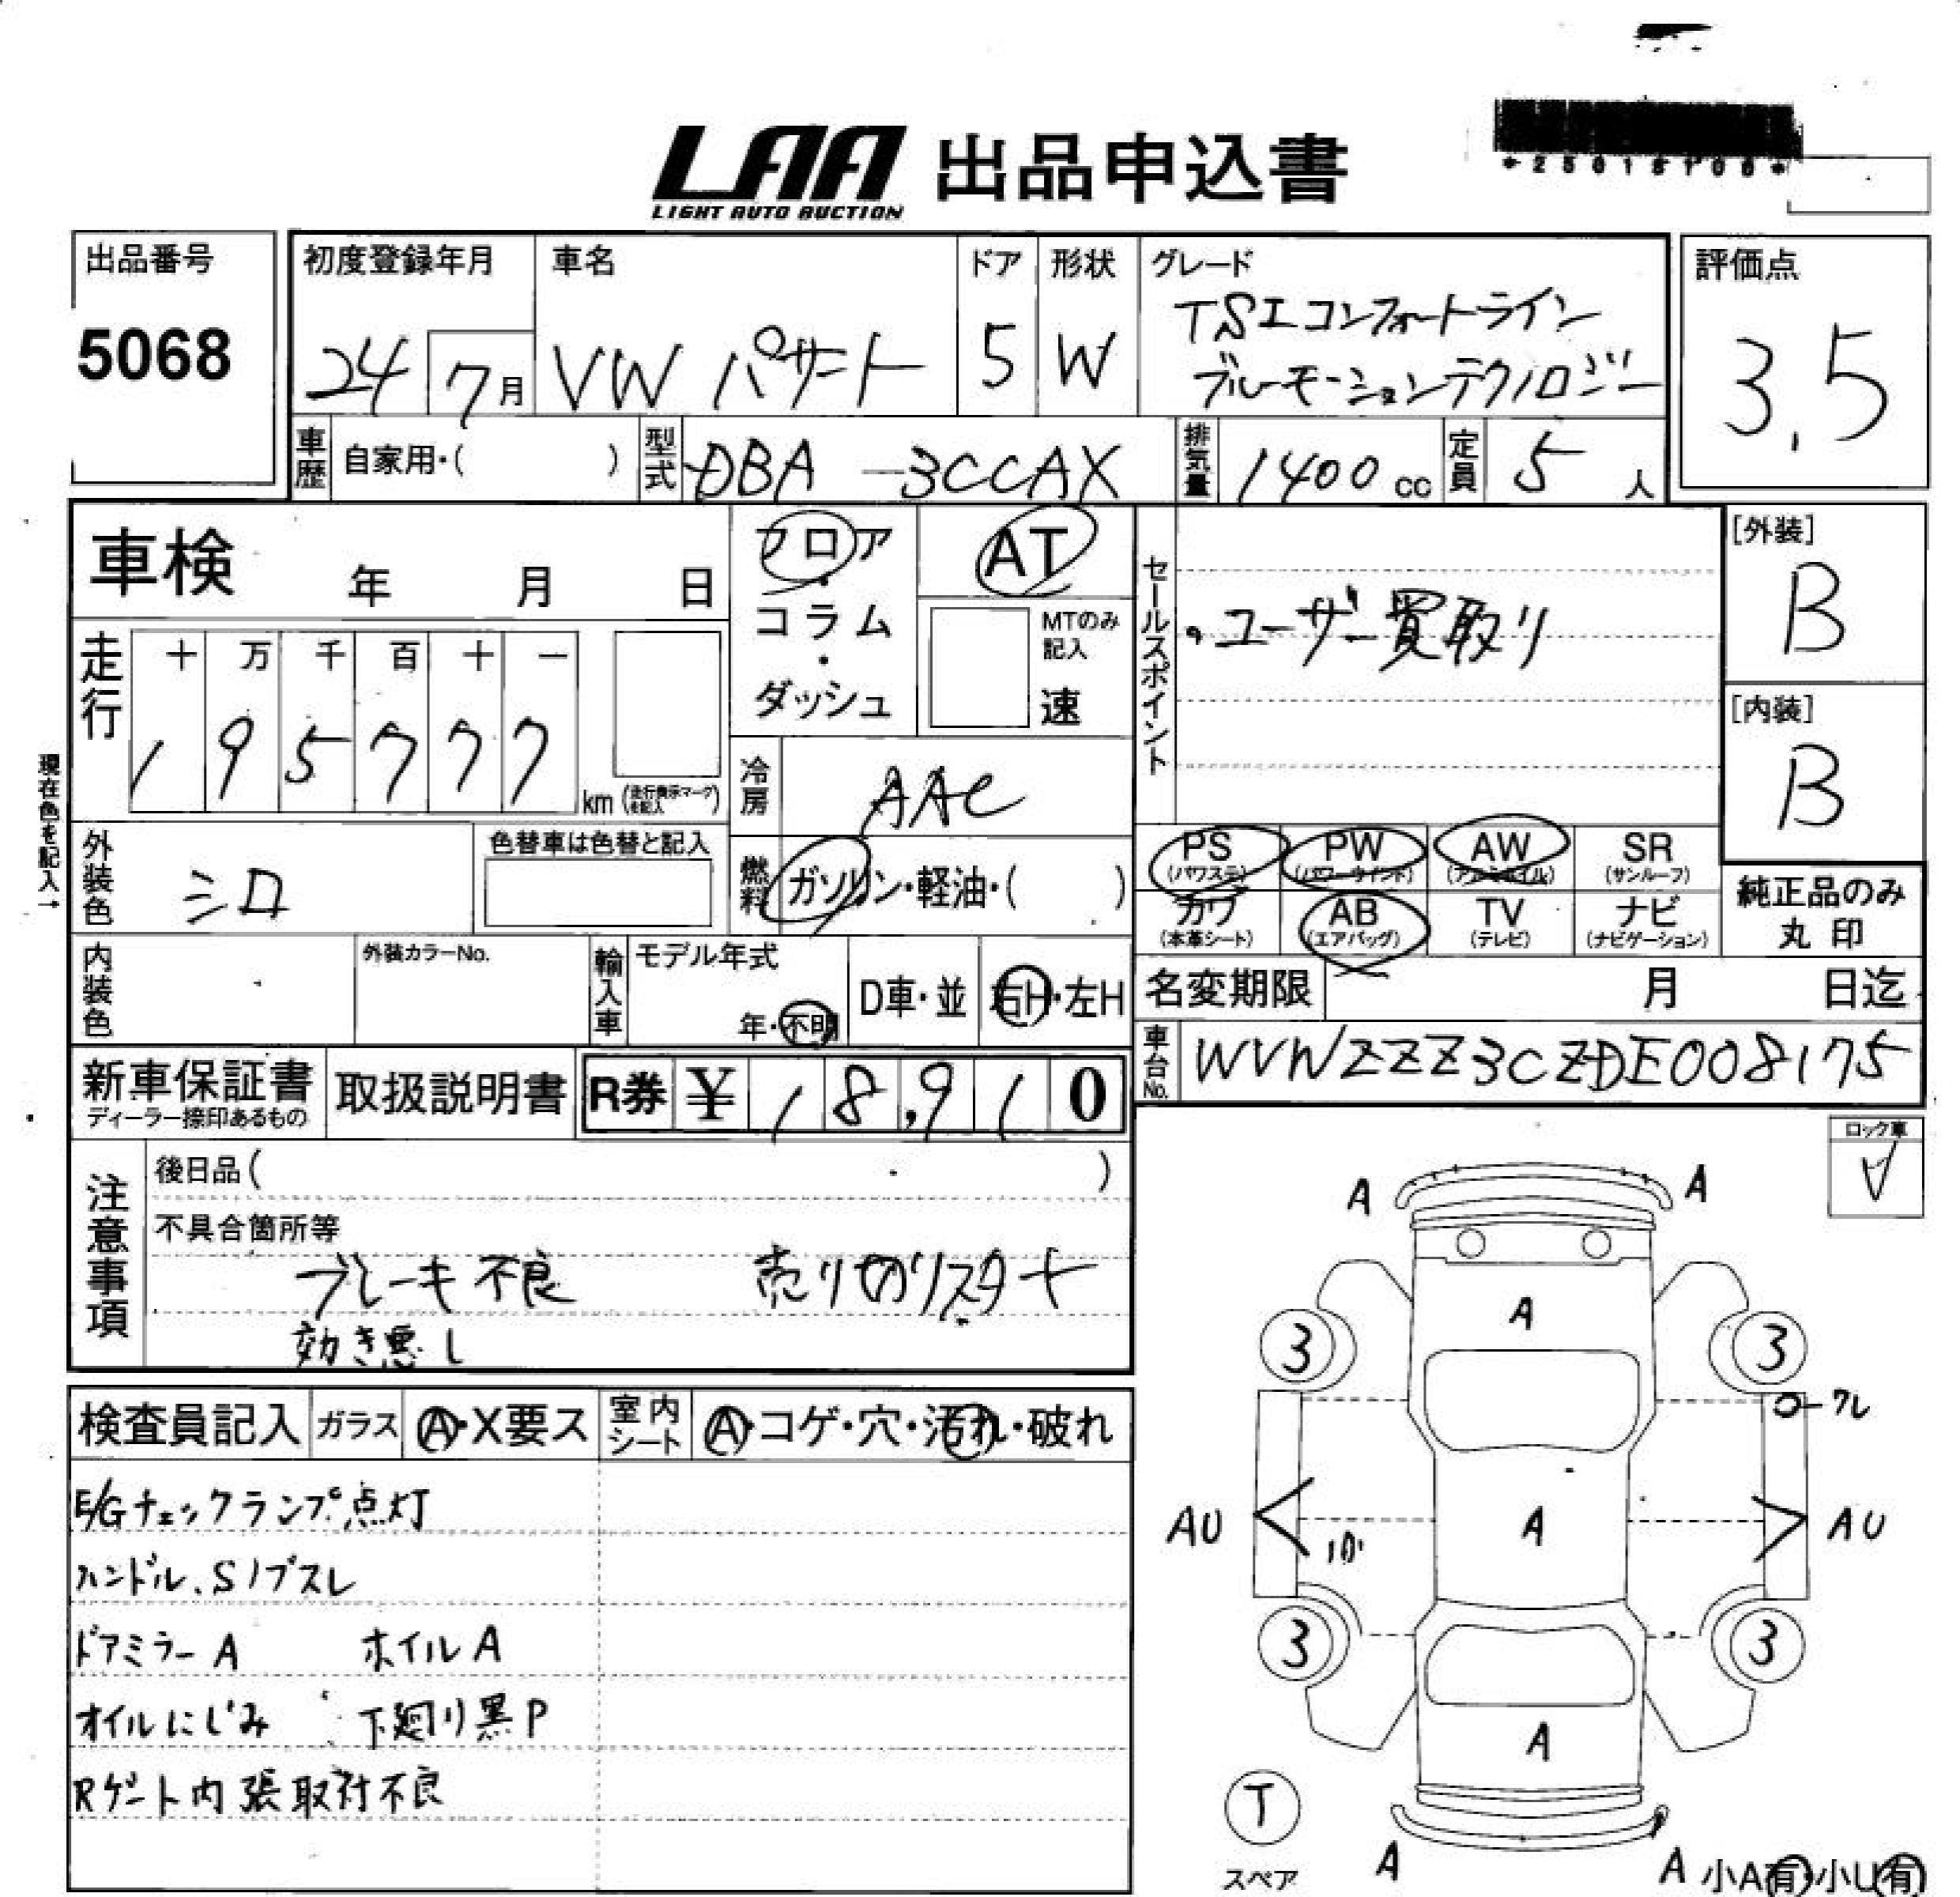 LAA 出品申込書
LIGHT AUTO AUCTION
出品番号
5068
初度登録年月
24 7月
車名
VW パサート
ドア
5
形状
W
グレード
TSIコンフォートライン
ブルーモーションテクノロジー
評価点
3.5
車歴 自家用・( )
型式 DBA-3CCAX
排気量 1400 cc
定員 5 人
車検 年 月 日
フロア・コラム・ダッシュ
AT
MTのみ記入
速
セールスポイント
・ユーザー買取り
[外装]
B
[内装]
B
走行
十 万 千 百 十 一
1 9 5 7 7 7 km (走行表示マークを記入)
現在色を記入→
冷房 AAC
外装色 シロ
色替車は色替と記入
燃料 ガソリン・軽油・( )
PS (パワステ) PW (パワーウインド) AW (アルミホイル) SR (サンルーフ)
カワ (本革シート) AB (エアバッグ) TV (テレビ) ナビ (ナビゲーション)
純正品のみ
丸印
内装色
外装カラーNo.
輸入車 モデル年式
年・不明
D車・並 右H・左H
名変期限 月 日迄
車台No. WVWZZZ3CZDE008175
新車保証書
ディーラー捺印あるもの
取扱説明書
R券 ¥ 18,910
ロック車
注意事項
後日品( )
不具合箇所等
ブレーキ不良 売り切りスタート
効き悪し
検査員記入 ガラス A・X要ス 室内シート A・コゲ・穴・汚れ・破れ
E/Gチェックランプ点灯
ハンドル、Sノブスレ
ドアミラーA ホイルA
オイルにじみ 下廻り黒P
Rゲート内張取付不良
A A
A
3 3
ワレ
AU A AU
3 3
A
T
スペア
A A 小A有・小U有